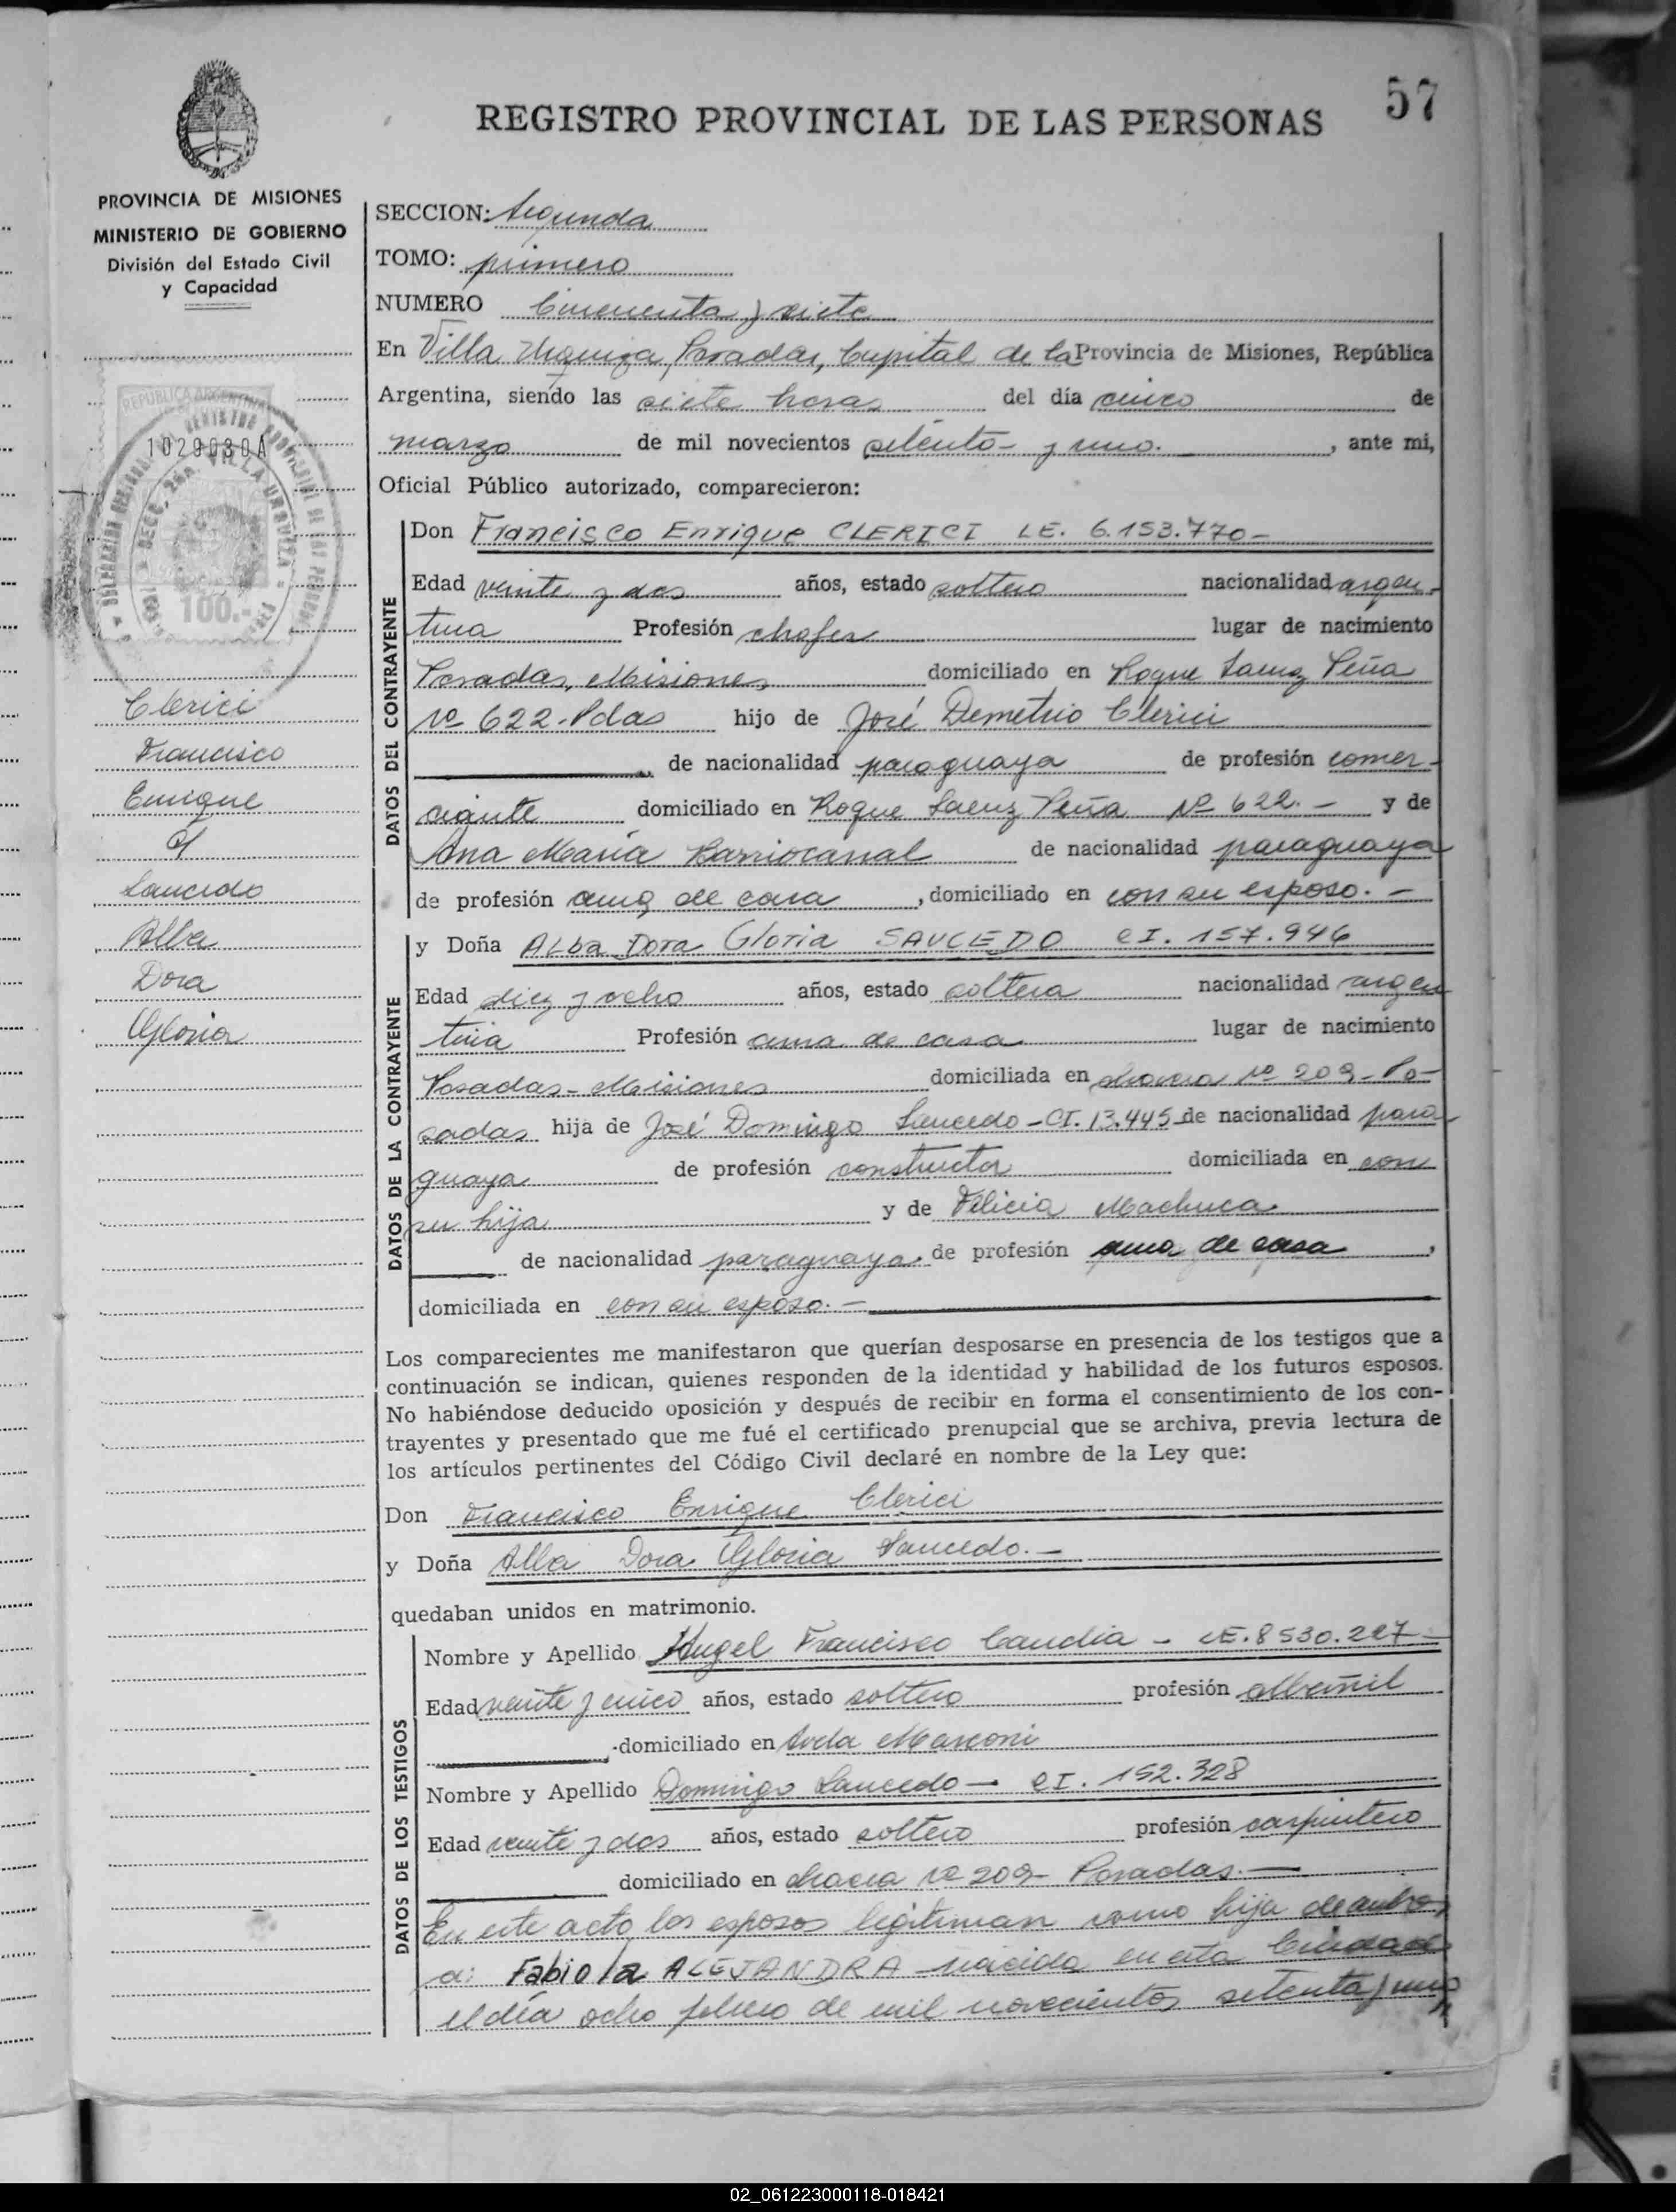 57
REGISTRO PROVINCIAL DE LAS PERSONAS
PROVINCIA DE MISIONES
MINISTERIO DE GOBIERNO
División del Estado Civil
y Capacidad
REPUBLICA ARGENTINA
1029030A
SECC. 2da. VILLA URQUIZA
100.-
Clerici
Francisco
Enrique
c/
Saucedo
Alba
Dora
Gloria
SECCION: Segunda
TOMO: primero
NUMERO Cincuenta y siete
En Villa Urquiza, Posadas, Capital de la Provincia de Misiones, República
Argentina, siendo las siete horas del día cinco de
marzo de mil novecientos setenta y uno.-, ante mi,
Oficial Público autorizado, comparecieron:
DATOS DEL CONTRAYENTE
Don Francisco Enrique CLERICI LE. 6.153.770-
Edad veinte y dos años, estado soltero nacionalidad argen-
tina Profesión chofer lugar de nacimiento
Posadas, Misiones domiciliado en Roque Saenz Peña
Nº 622-Pdas hijo de José Demetrio Clerici
de nacionalidad paraguaya de profesión comer-
ciante domiciliado en Roque Saenz Peña Nº 622.- y de
Ana María Barriocanal de nacionalidad paraguaya
de profesión ama de casa, domiciliado en con su esposo.-
DATOS DE LA CONTRAYENTE
y Doña Alba Dora Gloria SAUCEDO CI. 157.946
Edad diez y ocho años, estado soltera nacionalidad argen
tina Profesión ama de casa lugar de nacimiento
Posadas-Misiones domiciliada en chacra Nº 209-Po-
sadas hija de José Domingo Saucedo-CI. 13.445 de nacionalidad para
guaya de profesión constructor domiciliada en con
su hija y de Felicia Machuca
de nacionalidad paraguaya. de profesión ama de casa,
domiciliada en con su esposo.-
Los comparecientes me manifestaron que querían desposarse en presencia de los testigos que a
continuación se indican, quienes responden de la identidad y habilidad de los futuros esposos.
No habiéndose deducido oposición y después de recibir en forma el consentimiento de los con-
trayentes y presentado que me fué el certificado prenupcial que se archiva, previa lectura de
los artículos pertinentes del Código Civil declaré en nombre de la Ley que:
Don Francisco Enrique Clerici
y Doña Alba Dora Gloria Saucedo.-
quedaban unidos en matrimonio.
DATOS DE LOS TESTIGOS
Nombre y Apellido Angel Francisco Candia - LE. 8530.227-
Edad veinte y cinco años, estado soltero profesión albañil
domiciliado en Avda Marconi
Nombre y Apellido Domingo Saucedo - CI. 152.328
Edad veinte y dos años, estado soltero profesión carpintero
domiciliado en chacra Nº 209- Posadas.-
En este acto los esposos legitiman como hija de ambos,
a: Fabiola ALEJANDRA nacida en esta Ciudad
el día ocho febrero de mil novecientos setenta y uno
02_061223000118-018421